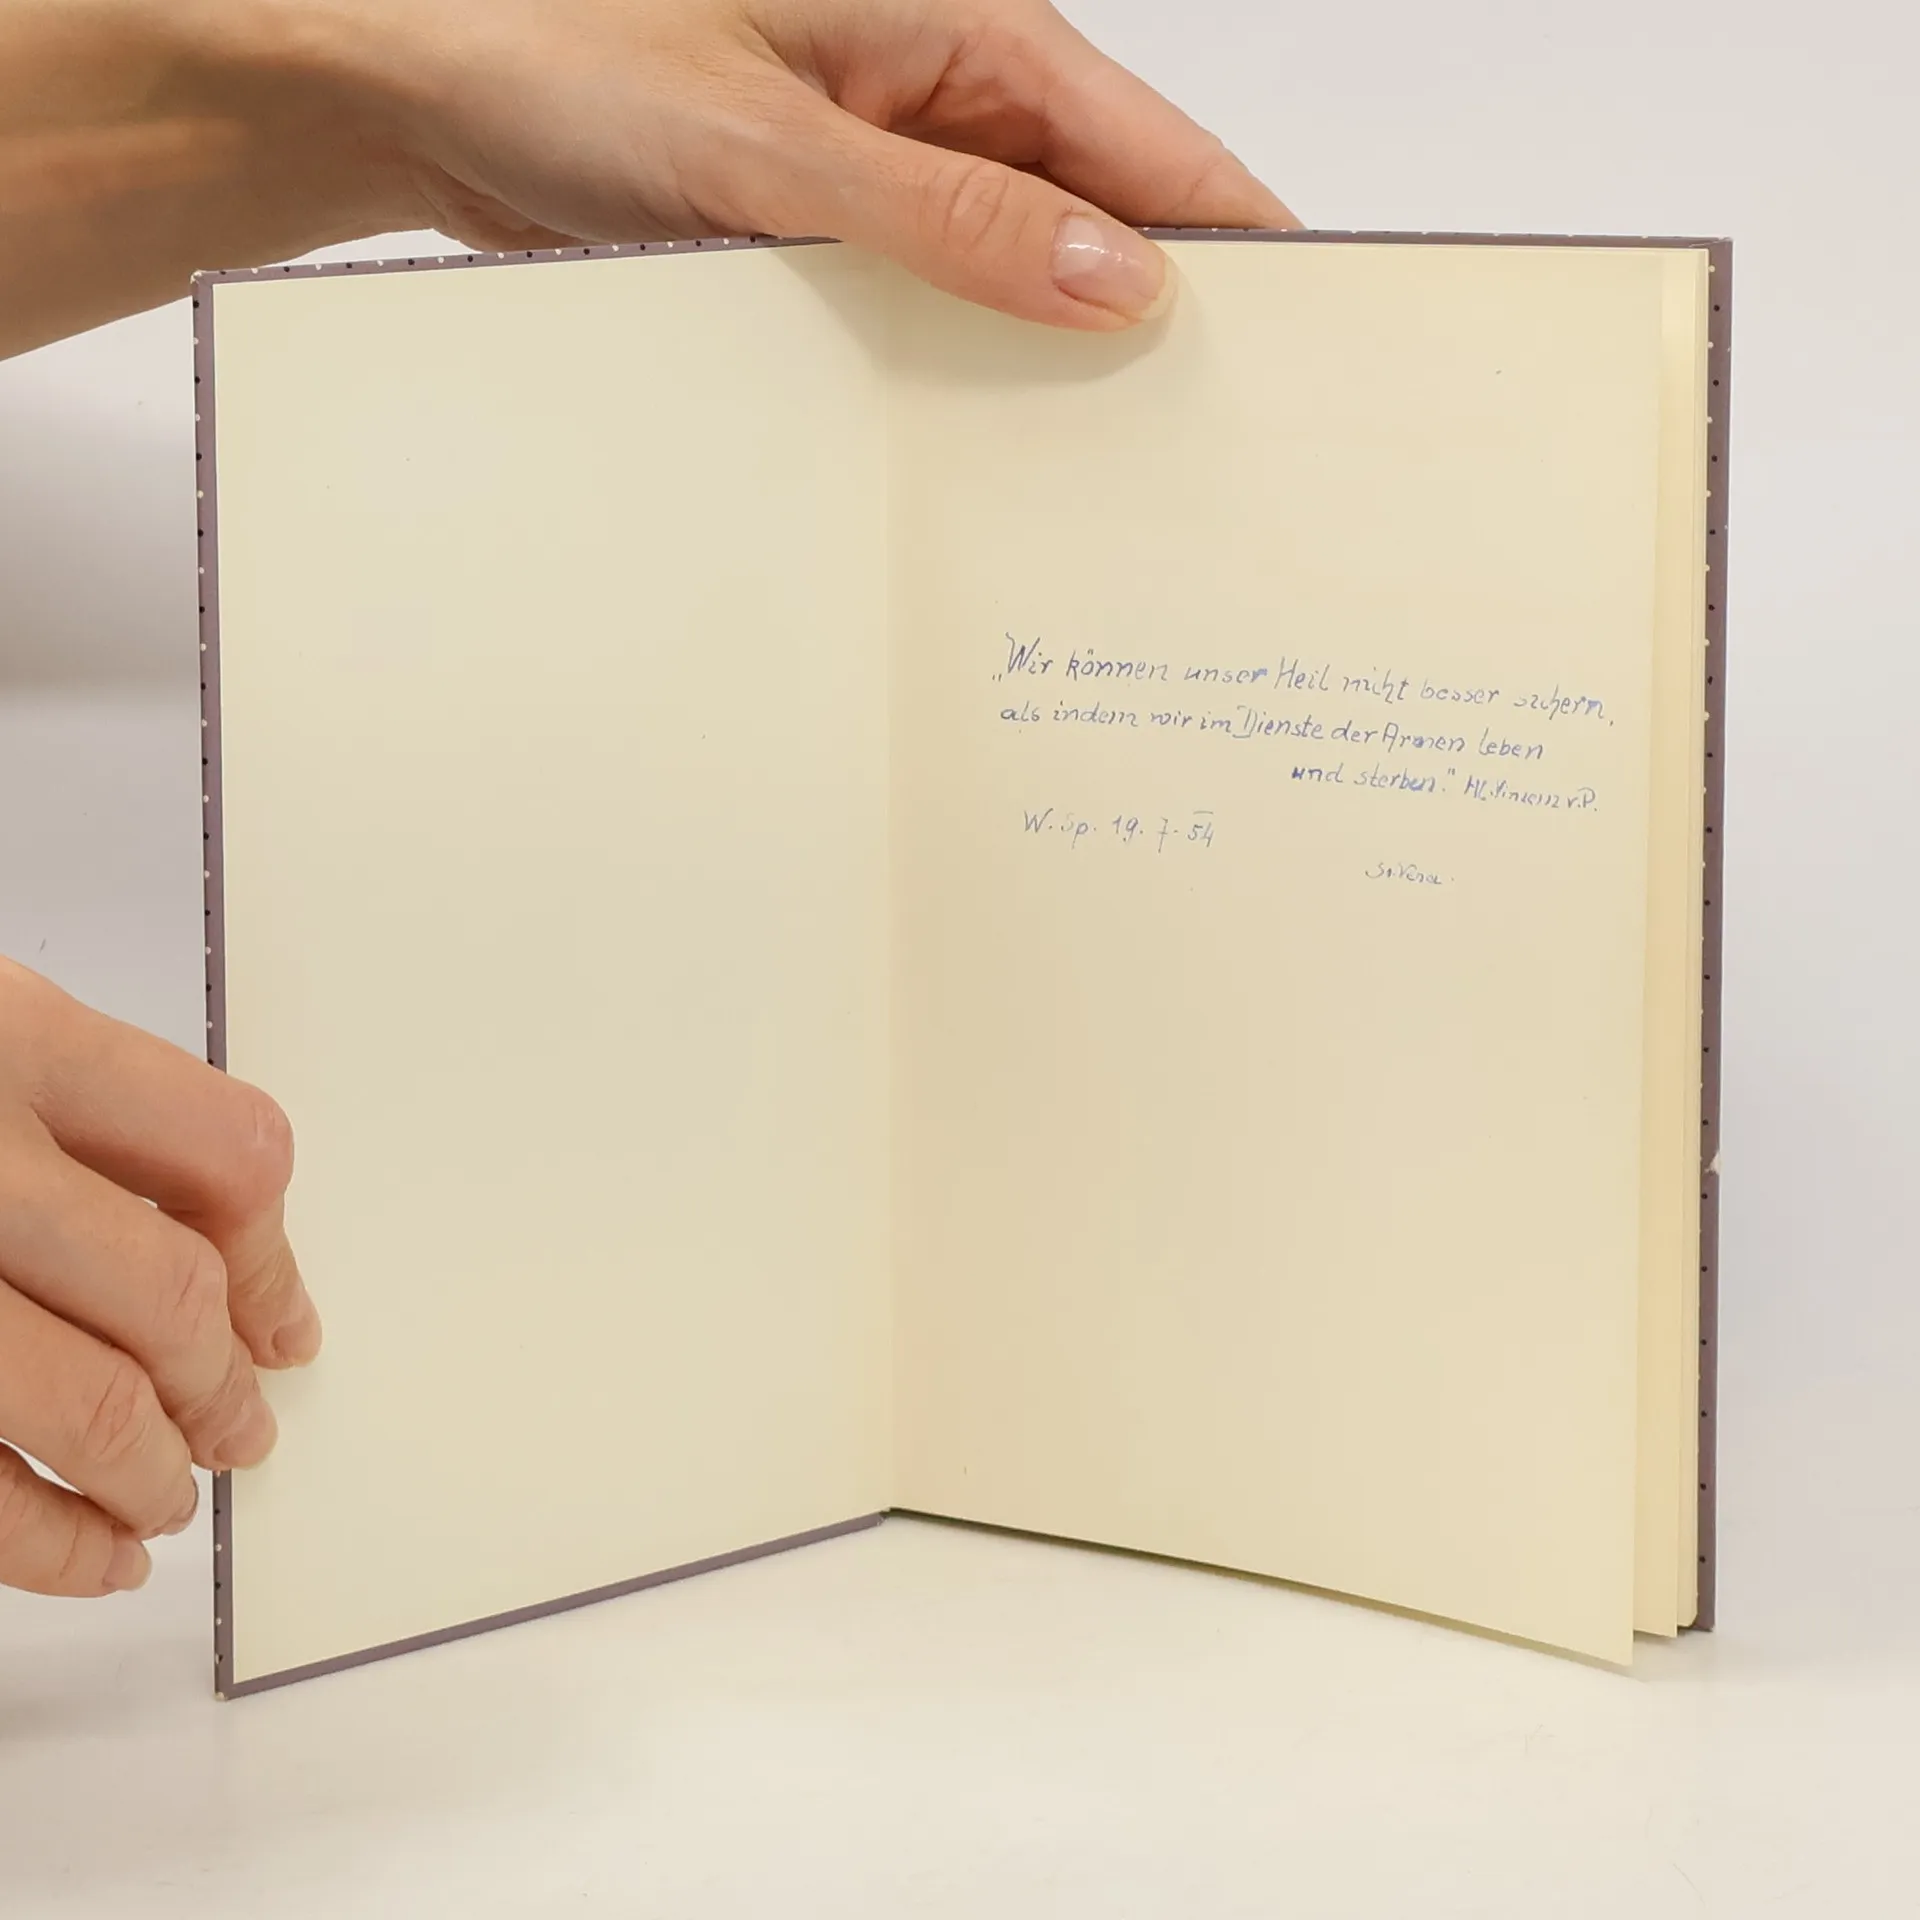 „Wir können unser Heil nicht besser sichern,
als indem wir im Dienste der Armen leben
und sterben." Hl. Vinzenz v. P.
W. Sp. 19. 7. 54
Sr. Vera.